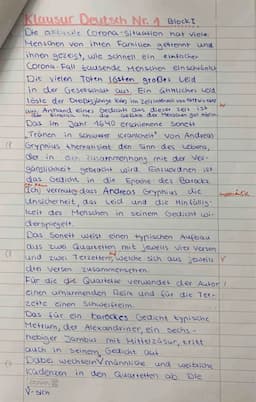 Klausur Deutsch Nr. 1 Block I
Die Corona-Situation hat viele
Menschen von ihren Familien getrennt und
ihnen gezeigt, wie schnell ein einfacher
Corona-Fall tausende Menschen einschränkt.
Die vielen Toten lösten großes Leid
in der Gesellschaft aus. Ein ähnliches Leid
löste der Dreißigjährige Krieg im Zeitraum von
aus. Anhand eines Gedichts aus dieser Zeit ist
die der Menschen
Das im Jahr 1640 erschienene Sonett
"Tränen in schwerer Krankheit" von Andreas
Gryphius thematisiert den Sinn des Lebens,
der in Zusammenhang mit der Ver-
gänglichkeit gebracht wird. Einzuordnen ist
das Gedicht in die Epoche des Barocks.
Ich vermute, dass Andreas Gryphius die
Unsicherheit, das Leid und die Hinfällig-
keit des Menschen in seinem Gedicht wi-
derspiegelt.
Das Sonett weist einen typischen Aufbau
aus zwei Quartetten mit jeweils vier Versen
und zwei Terzetten, welche sich aus jeweils
drei Versen zusammensetzen.
Für die Quartette verwendet der Autor
einen umarmenden Reim und für die Ter-
zette einen Schweifreim.
Das für ein barockes Gedicht typische
Metrum, der Alexandriner, ein sechs-
hebiger Jambus mit Mittelzäsur, tritt
auch in seinem Gedicht auf.
Dabei wechseln männliche und weibliche
Kadenzen in den Quartetten ab. Die
V-sich